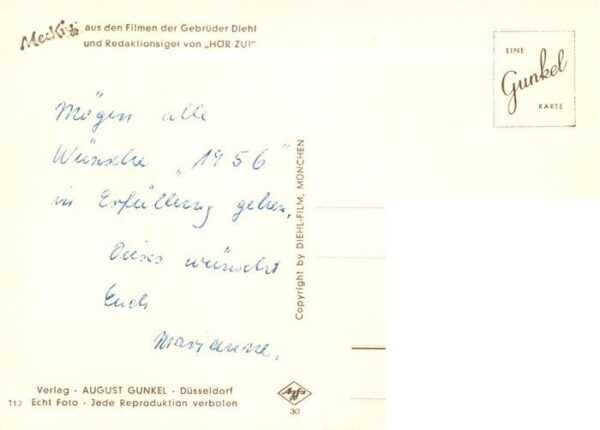 Mecki aus den Filmen der Gebrüder Diehl
und Redaktionsigel von „HÖR ZU!"
EINE
Gunkel
KARTE
Mögen alle
Wünsche „1956"
in Erfüllung gehen.
Dieses wünscht
Euch
Marianne.
Copyright by DIEHL-FILM, MÜNCHEN
Verlag - AUGUST GUNKEL - Düsseldorf
112 Echt Foto - Jede Reproduktion verboten
Agfa
30